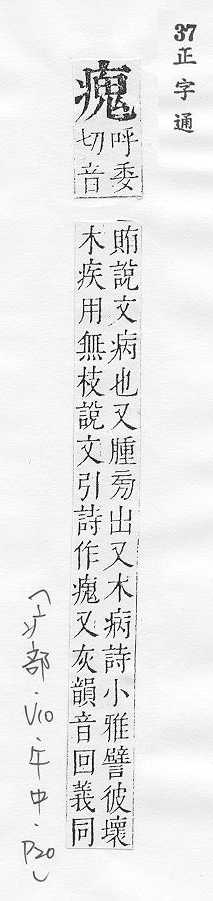 37正字通
瘣
呼委
切音
賄說文病也又腫旁出又木病詩小雅譬彼壞
木疾用無枝說文引詩作瘣又灰韻音回義同
(疒部.V10.午中.P20)